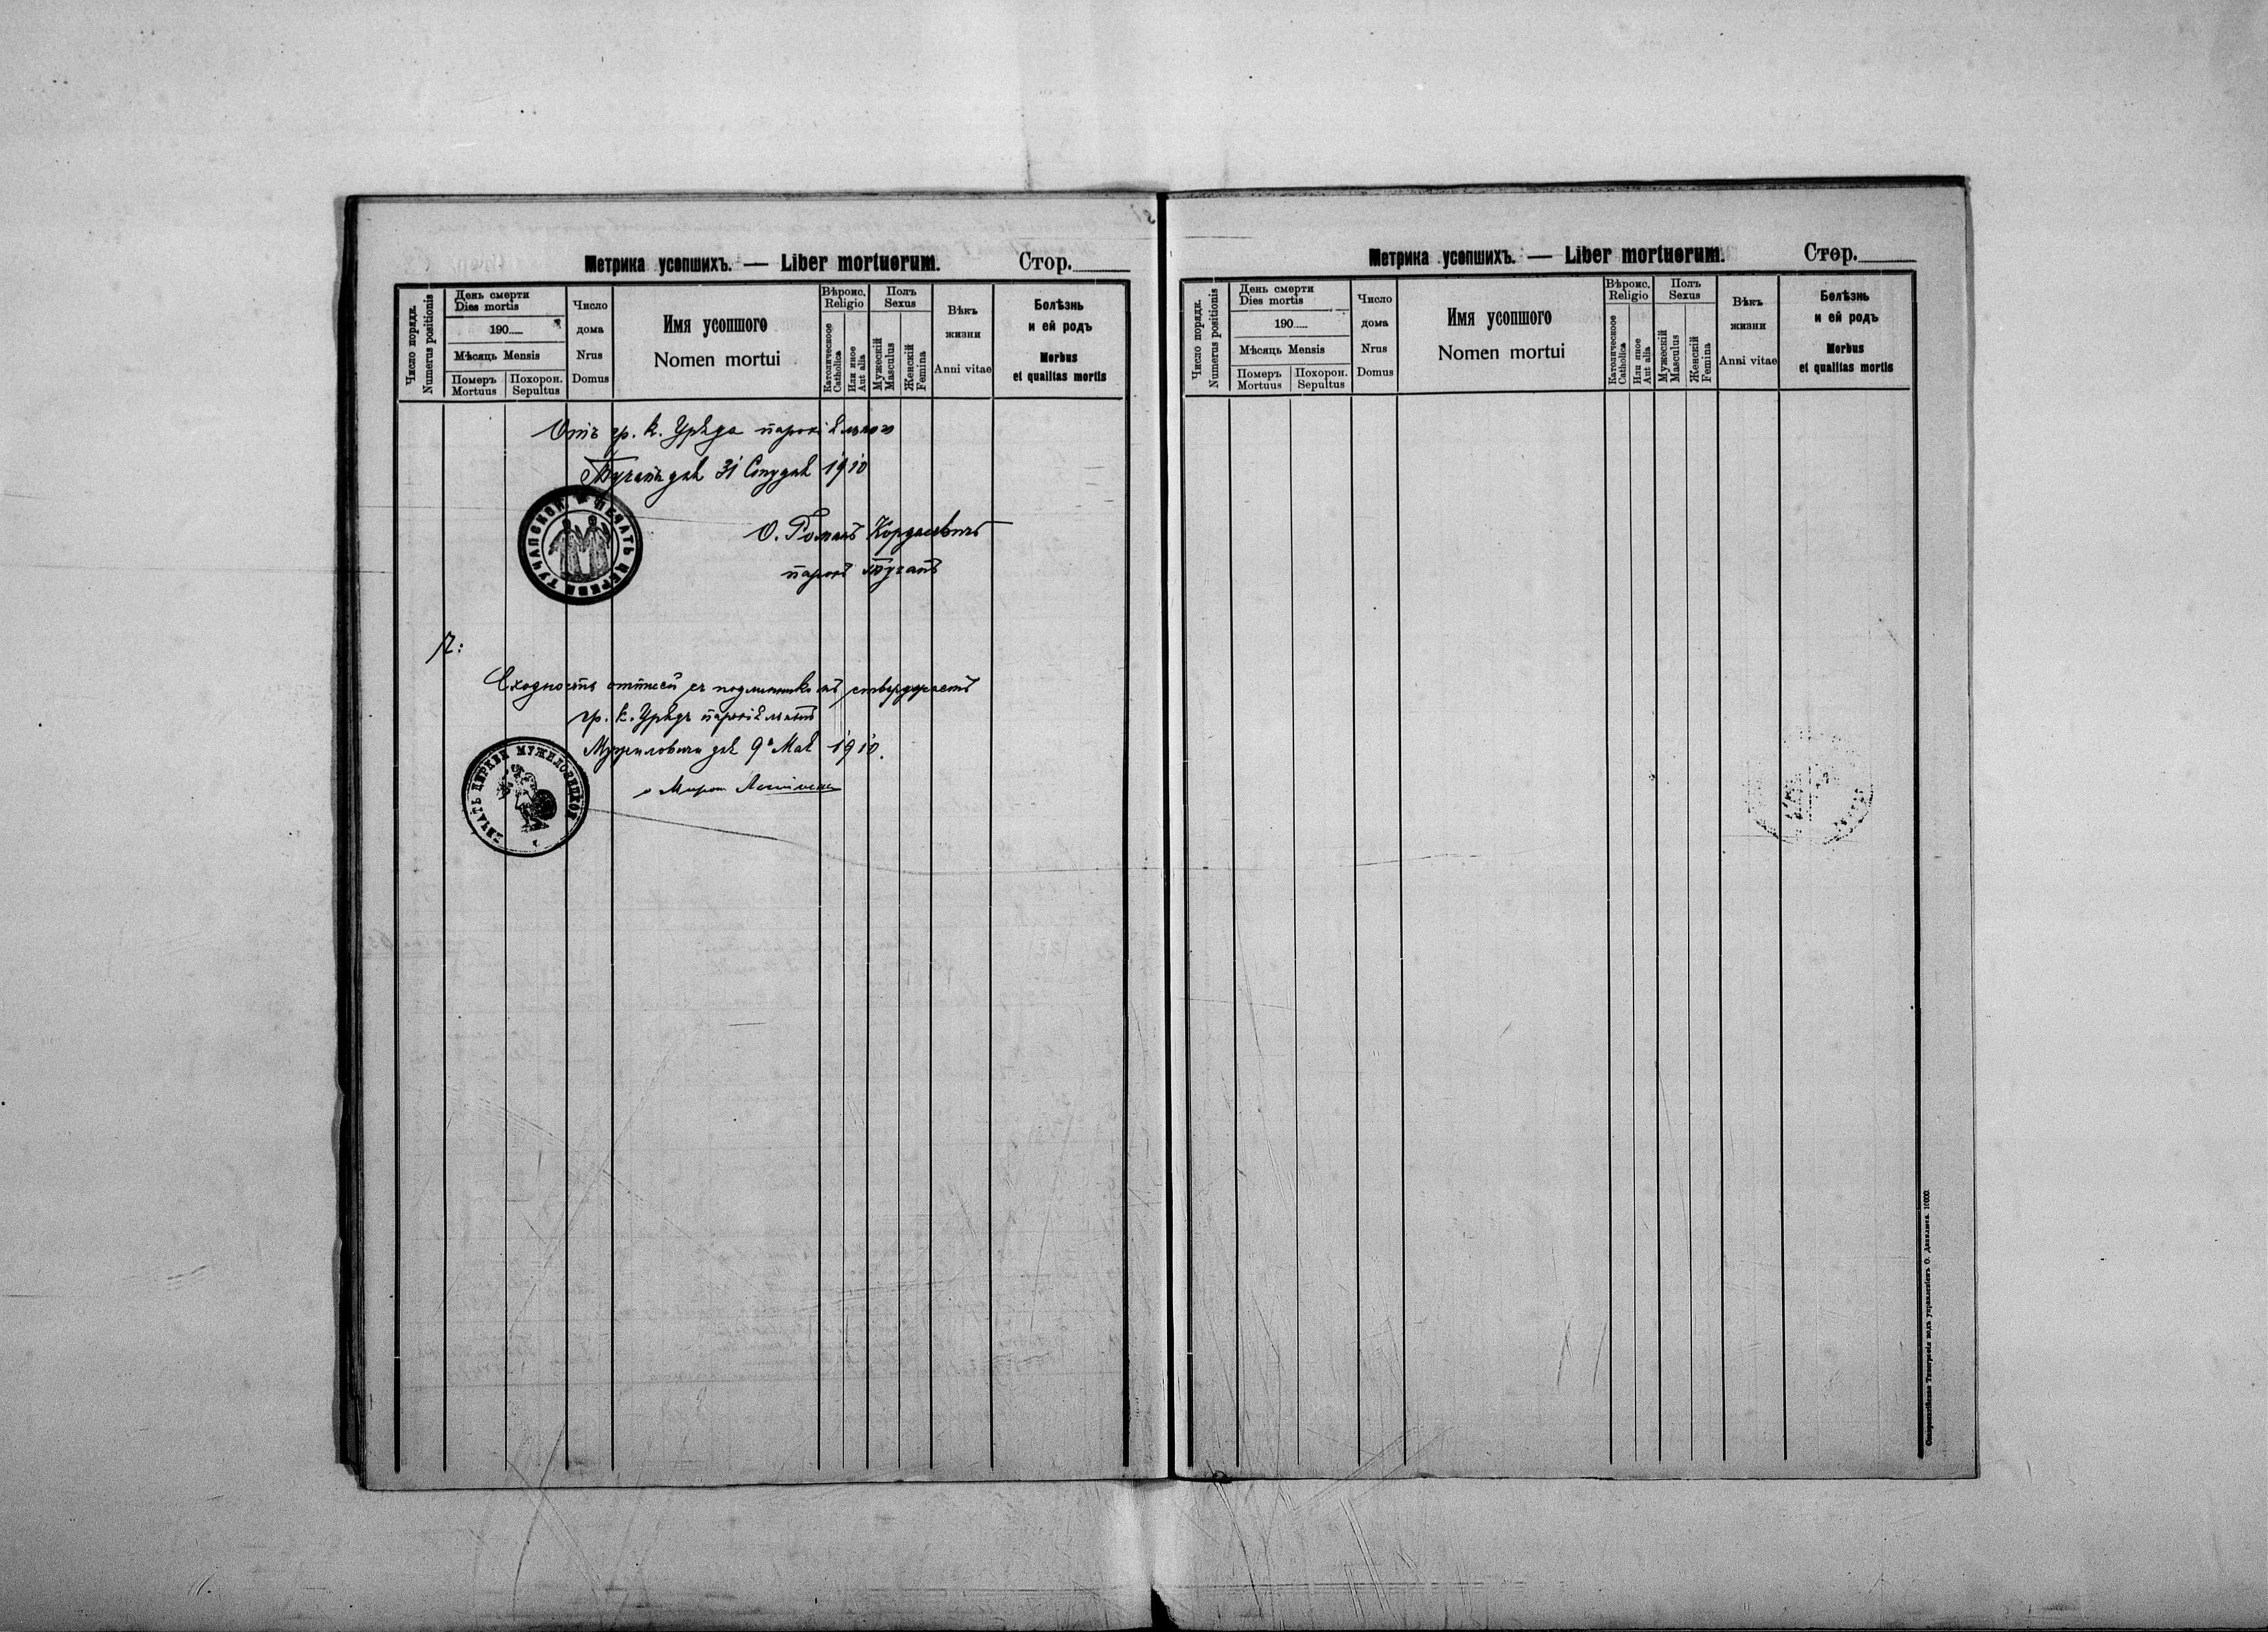 Метрика усопшихъ. — Liber mortuorum. Стор.
Число порядк.
Numerus positionis
День смерти
Dies mortis
190
Мѣсяць Mensis
Померъ
Mortuus
Похорон.
Sepultus
Число
дома
Nrus
Domus
Имя усопшого
Nomen mortui
Вѣроис.
Religio
Католическое
Catholica
Или иное
Aut alia
Полъ
Sexus
Мужескій
Masculus
Женскій
Femina
Вѣкъ
жизни
Anni vitae
Болѣзнь
и ей родъ
Morbus
et qualitas mortis
Отъ гр. к. Уряда парохіяльного
31 1910
ПЕЧАТЬ ЦЕРКВИ ТУЧАПСКОЙ
О. Романъ
парохъ Тучапъ
Сходность съ подлинникомъ
гр. к. Урядъ парохіяльный
Мужиловичи дня 9 Мая 1910.
о Миронъ
ПЕЧАТЬ ЦЕРКВИ МУЖИЛОВИЦКОЙ
Метрика усопшихъ. — Liber mortuorum. Стор.
Число порядк.
Numerus positionis
День смерти
Dies mortis
190
Мѣсяць Mensis
Померъ
Mortuus
Похорон.
Sepultus
Число
дома
Nrus
Domus
Имя усопшого
Nomen mortui
Вѣроис.
Religio
Католическое
Catholica
Или иное
Aut alia
Полъ
Sexus
Мужескій
Masculus
Женскій
Femina
Вѣкъ
жизни
Anni vitae
Болѣзнь
и ей родъ
Morbus
et qualitas mortis
Ставропигійская Типографія подъ управленіемъ О. Данилюка. 10000.